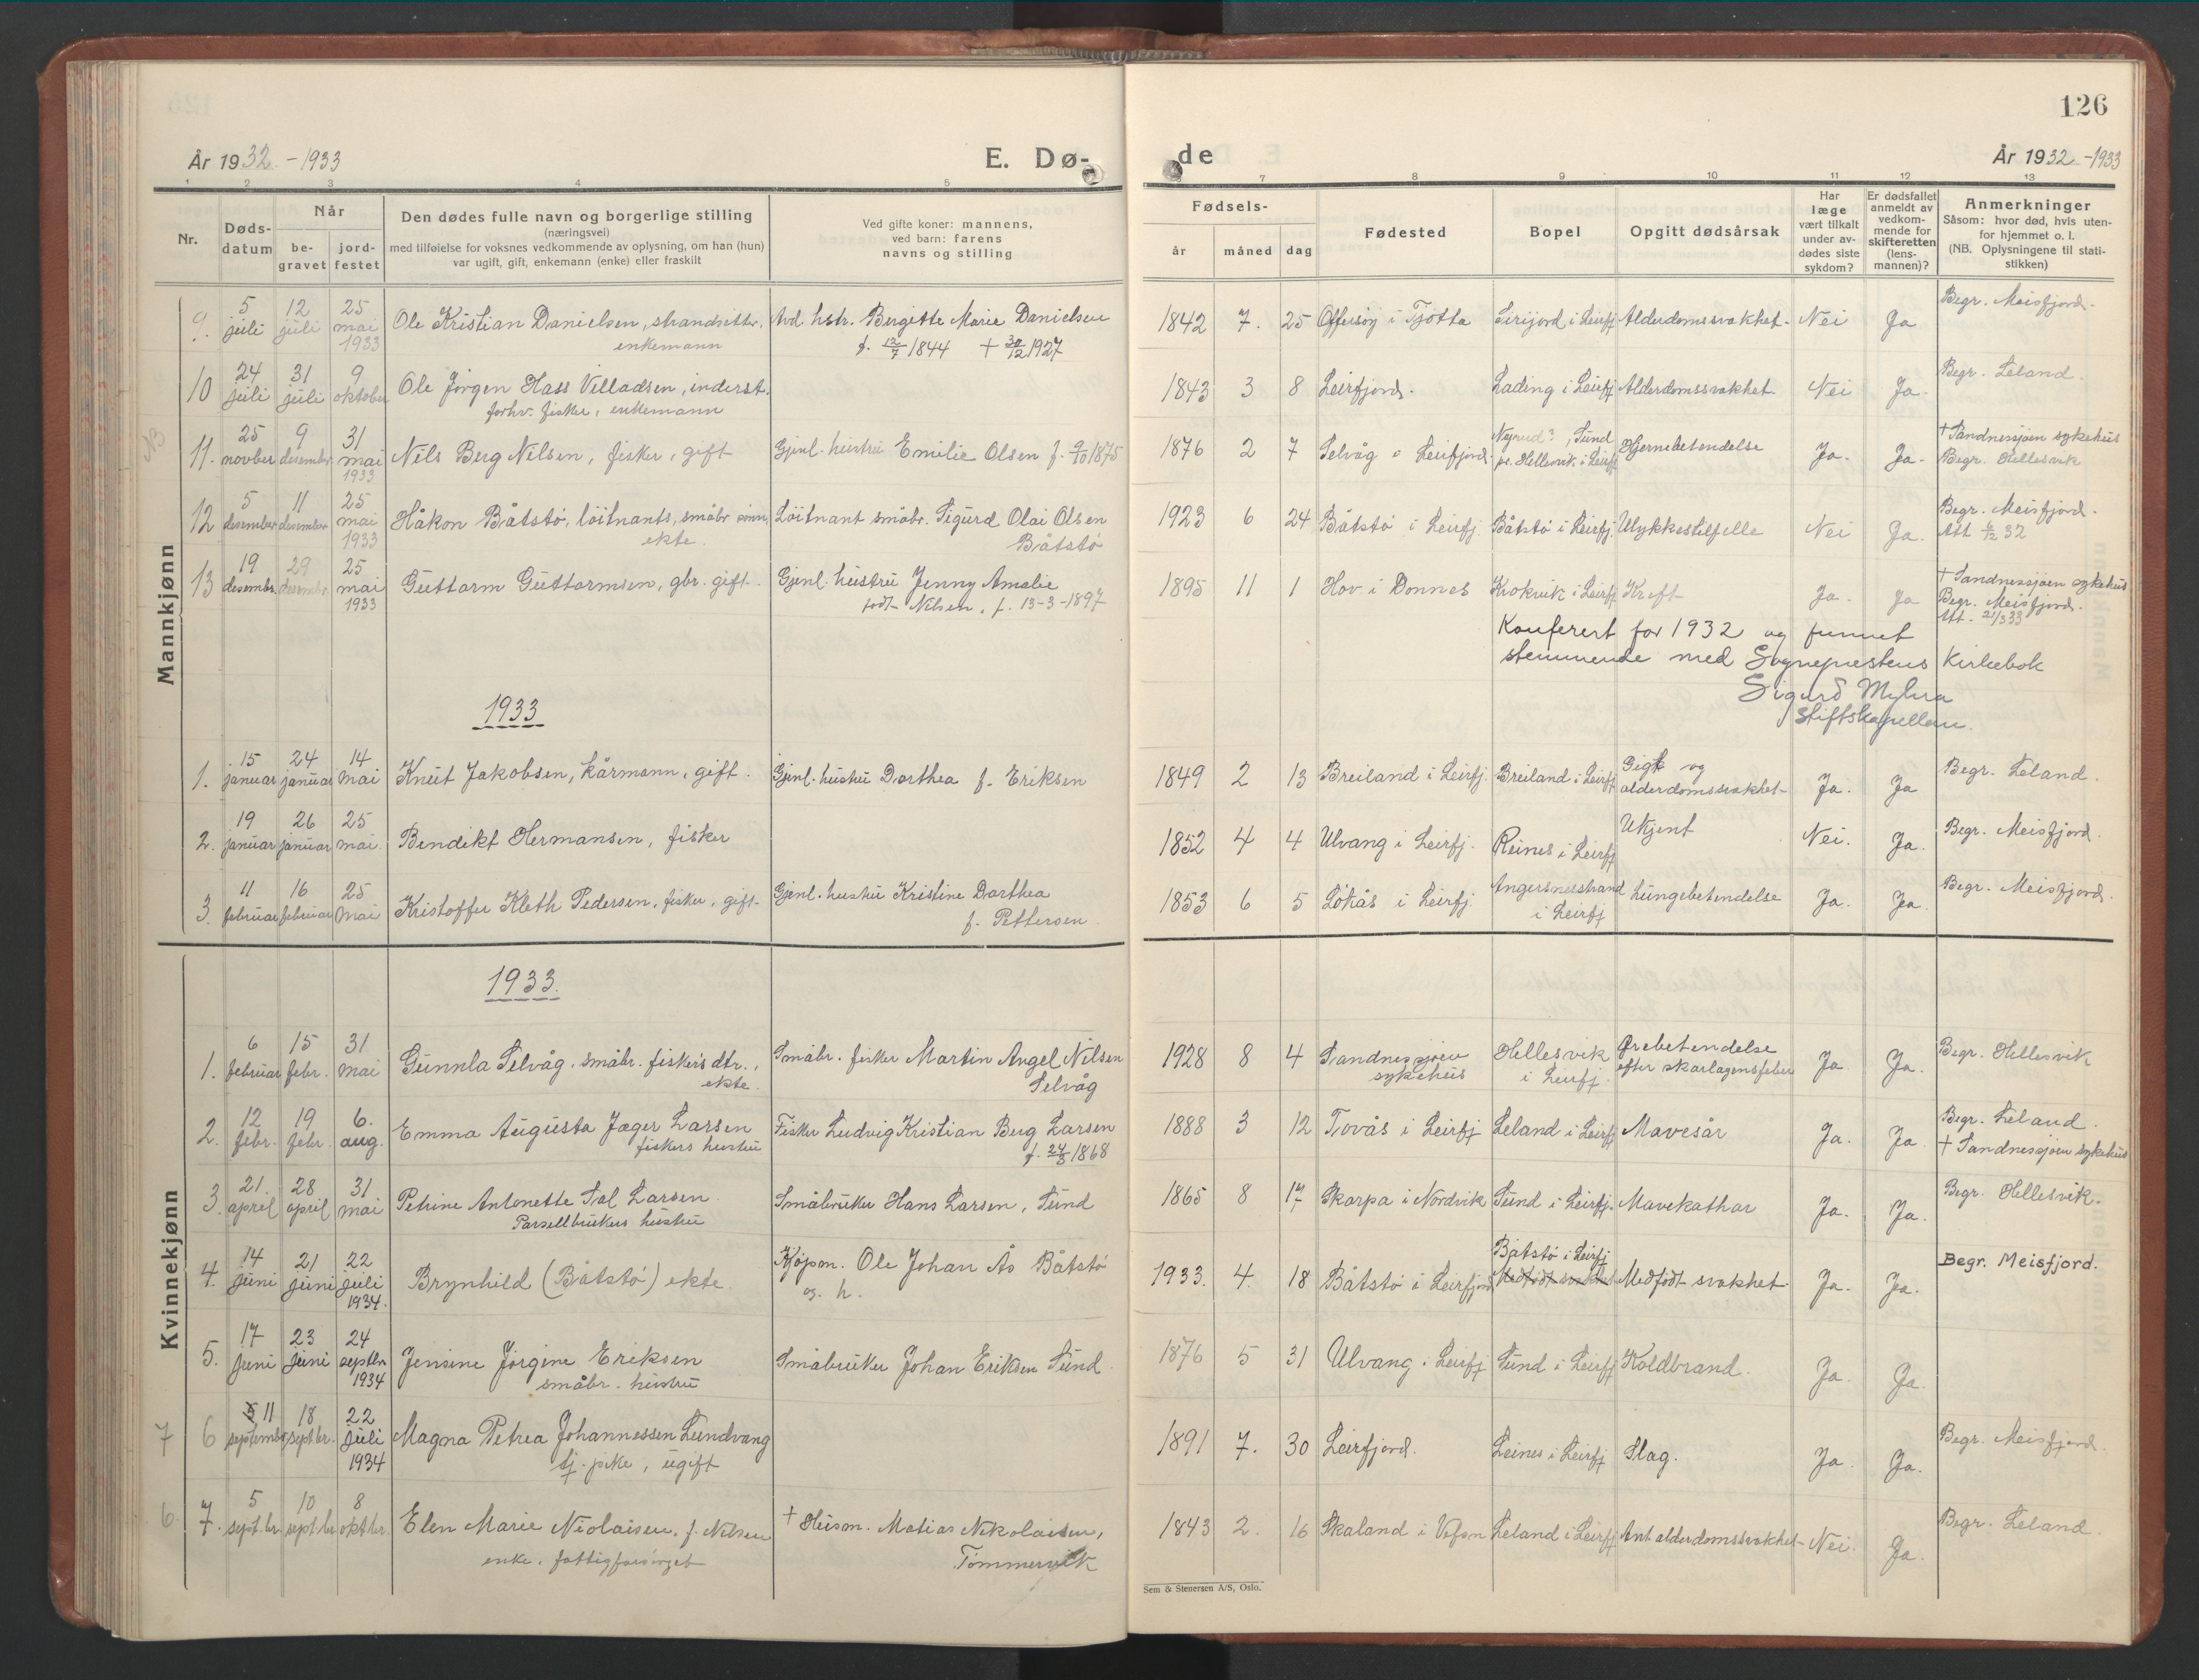 126
År 1932 - 1933
E. Dø-
de
År 1932 - 1933
1 2 3 4 5
7 8 9 10 11 12 13
Nr.
Døds-
datum
Når
be-
gravet
jord-
festet
Den dødes fulle navn og borgerlige stilling
(næringsvei)
med tilføielse for voksnes vedkommende av oplysning, om han (hun)
var ugift, gift, enkemann (enke) eller fraskilt
Ved gifte koner: mannens,
ved barn: farens
navns og stilling
Fødsels-
år måned dag
Fødested
Bopel
Opgitt dødsårsak
Har
læge
vært tilkalt
under av-
dødes siste
sykdom?
Er dødsfallet
anmeldt av
vedkom-
mende for
skifteretten
(lens-
mannen)?
Anmerkninger
Såsom: hvor død, hvis uten-
for hjemmet o. l.
(NB. Oplysningene til stati-
stikken)
Mannkjønn
9. 5 juli 12 juli 25 mai 1933 Ole Kristian Danielsen, strandsitter, enkemann
Avd. hstr. Bergitte Marie Danielsen
f. 12/7 1844 + 30/12 1927
1842 7. 25 Offersøy i Tjøtta Leirfj. Alderdomssvakhet. Nei Ja Begr. Meisfjord.
10 24 juli 31 juli 9 oktober Ole Jørgen Hass Villadsen, inderst.
forhv. fisker, enkemann
1843 3 8 Leirfjord. Lading i Leirfj Alderdomssvakhet. Nei Ja. Begr. Leland.
11. 25 novber 9 desember 31 mai 1933 Nils Berg Nilsen, fisker, gift
Gjenl. hustru Emilie Olsen f. 9/10 1875
1876 2 7 Selvåg i Leirfjord. Sund
pr. Hellesvik i Leirfj Hjernebetendelse Ja. Ja. + Sandnessjøen sykehus
Begr. Hellesvik
12 5 desember 11 desember 25 mai 1933 Håkon Båtstø, løitnants, småbr sønn,
ekte.
Løitnant småbr. Sigurd Olai Olsen
Båtstø
1923 6 24 Båtstø i Leirfj. Båtstø i Leirfj. Ulykkestilfelle Nei Ja. Begr. Meisfjord.
Att 6/12 32
13 19 desembr. 29 desembr. 25 mai 1933 Guttorm Guttormsen, gbr. gift.
Gjenl. hustru Jenny Amalie
født Nilsen, f. 13-3-1897
1895 11 1 Hov i Dønnes Krokvik i Leirfj Kreft Ja. Ja + Sandnessjøen sykehus
Begr. Meisfjord.
Att. 21/3 33
Konferert for 1932 og funnet
stemmende med Sogneprestens Kirkebok
Sigurd Myhra
Stiftskapellan.
1933
1. 15 januar 24 januar 14 mai Knut Jakobsen, kårmann, gift.
Gjenl. hustru Dorthea f. Eriksen
1849 2 13 Breiland i Leirfj. Breiland i Leirfj Gigt og
alderdomssvakhet Ja. Ja Begr. Leland.
2. 19 januar 26 januar 25 mai. Bendikt Hermansen, fisker
1852 4 4 Ulvang i Leirfj. Reines i Leirfj Ukjent Nei. Ja. Begr. Meisfjord.
3. 11 februar 16 februar 25 mai Kristoffer Kleth Pedersen, fisker, gift.
Gjenl. hustru Kristine Dorthea
f. Pettersen.
1853 6 5 Løkås i Leirfj. Angersnesstrand
i Leirfj lungebetendelse Ja. Ja. Begr. Meisfjord.
Kvinnekjønn
1933.
1. 6 februar 15 febr. 31 mai Gunnla Selvåg, småbr. fiskers dtr.,
ekte.
Småbr. fisker Martin Angel Nilsen
Selvåg
1928 8 4 Sandnessjøen
sykehus Hellesvik
i Leirfj. Ørebetendelse
efter skarlagensfeber Ja. Ja. Begr. Hellesvik
2. 12 febr. 19 febr. 6. aug. Emma Augusta Jæger Larsen
fiskers hustru
Fisker Ludvig Kristian Berg Larsen
f. 24/8 1868
1888 3 12 Tovås i Leirfj Leland i Leirfj Mavesår Ja. Ja. Begr. Leland.
+ Sandnessjøen sykehus
3. 21. april 28 april 31 mai Petrine Antonette Sal Larsen
Parsellbrukers hustru
Småbruker Hans Larsen, Sund
1865 8 17 Skarpa i Nordvik Sund i Leirfj. Mavekathar Ja. Ja. Begr. Hellesvik.
4. 14 juni 21 juni 22 juli 1934. Brynhild (Båtstø) ekte.
Kjøpm. Ole Johan Ås Båtstø
og h.
1933. 4. 18 Båtstø i Leirfjord Båtstø i Leirfj
Medfødt svakhet Medfødt svakhet Ja. Ja. Begr. Meisfjord.
5. 17 juni 23 juni 24 septbr 1934 Jensine Jørgine Eriksen
småbr. hustru
Småbruker Johan Eriksen Sund
1876 5 31 Ulvang i Leirfj Sund i Leirfj Koldbrand. Ja. Ja.
7 6 5 11 september 18 sept.br. 22 juli 1934 Magna Petrea Johannessen Lundvang
tj. pike, ugift
1891 7. 30 Leirfjord. Leines i Leirfj Slag. Ja. Ja. Begr. Meisfjord.
6. 7. 5 sept.br. 10 sept.br 8 oktbr. Elen Marie Nicolaisen, f. Nilsen
enke, fattigforsørget
+ Husm. Matias Nikolaisen,
Tømmervik
1843 2. 16 Skaland i Vefsn Leland i Leirfj Ant. alderdomssvakhet Nei. Ja. Begr. Leland.
Sem & Stenersen A/S, Oslo.